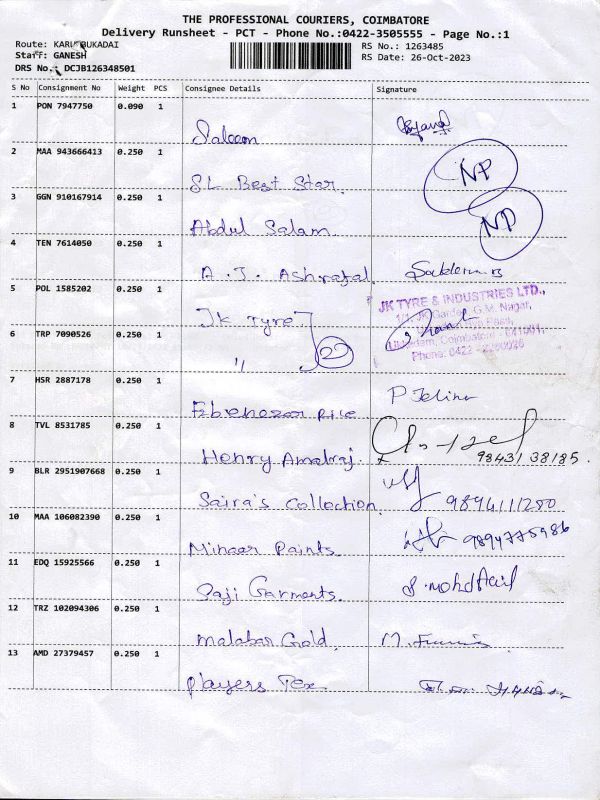 THE PROFESSIONAL COURIERS, COIMBATORE
Delivery Runsheet - PCT - Phone No.:0422-3505555 - Page No.:1
Route: KARUMBUKADAI
RS No.: 1263485
Staff: GANESH
RS Date: 26-Oct-2023
DRS No.: DCJB126348501
S No Consignment No Weight PCS Consignee Details Signature
1 PON 7947750 0.090 1
Saleem
2 MAA 943666413 0.250 1
NP
SL Best Star
3 GGN 910167914 0.250 1
NP
Abdul Salam
4 TEN 7614050 0.250 1
A. J. Ashrafal
5 POL 1585202 0.250 1
JK TYRE & INDUSTRIES LTD.,
JK Tyre
6 TRP 7090526 0.250 1
" 22
Phone: 0422
7 HSR 2887178 0.250 1
Ebenezar
8 TVL 8531785 0.250 1
Henry Amalraj 98431 38185.
9 BLR 2951907668 0.250 1
Saira's Collection 9894111280
10 MAA 106082390 0.250 1
9894775986
Minaar Paints
11 EDQ 15925566 0.250 1
Saji Garments.
12 TRZ 102094306 0.250 1
Malabar Gold.
13 AMD 27379457 0.250 1
Players Tex